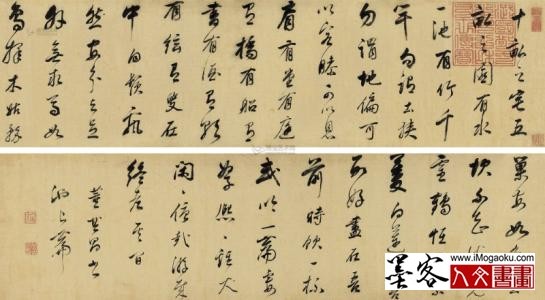 十畝之宅五
畝之園有水
一池有竹千
竿勿謂土狹
勿謂地偏可
以容膝可以息
肩有堂有庭
有橋有船有
書有酒有歌
有絃有叟在
中白鬚飄
然安分知足
外無求焉如
鳥擇木姑務
巢安如龜居
坎不知海
靈鶴怪
菱白蓮
所好盡在吾
前時飲一杯
或吟一篇妻
孥熙熙雞犬
閑閑優哉游哉
終老其間
董其昌書
池上篇
www.iMogaoku.com
墨客
人文書画
www.iMogaoku.com